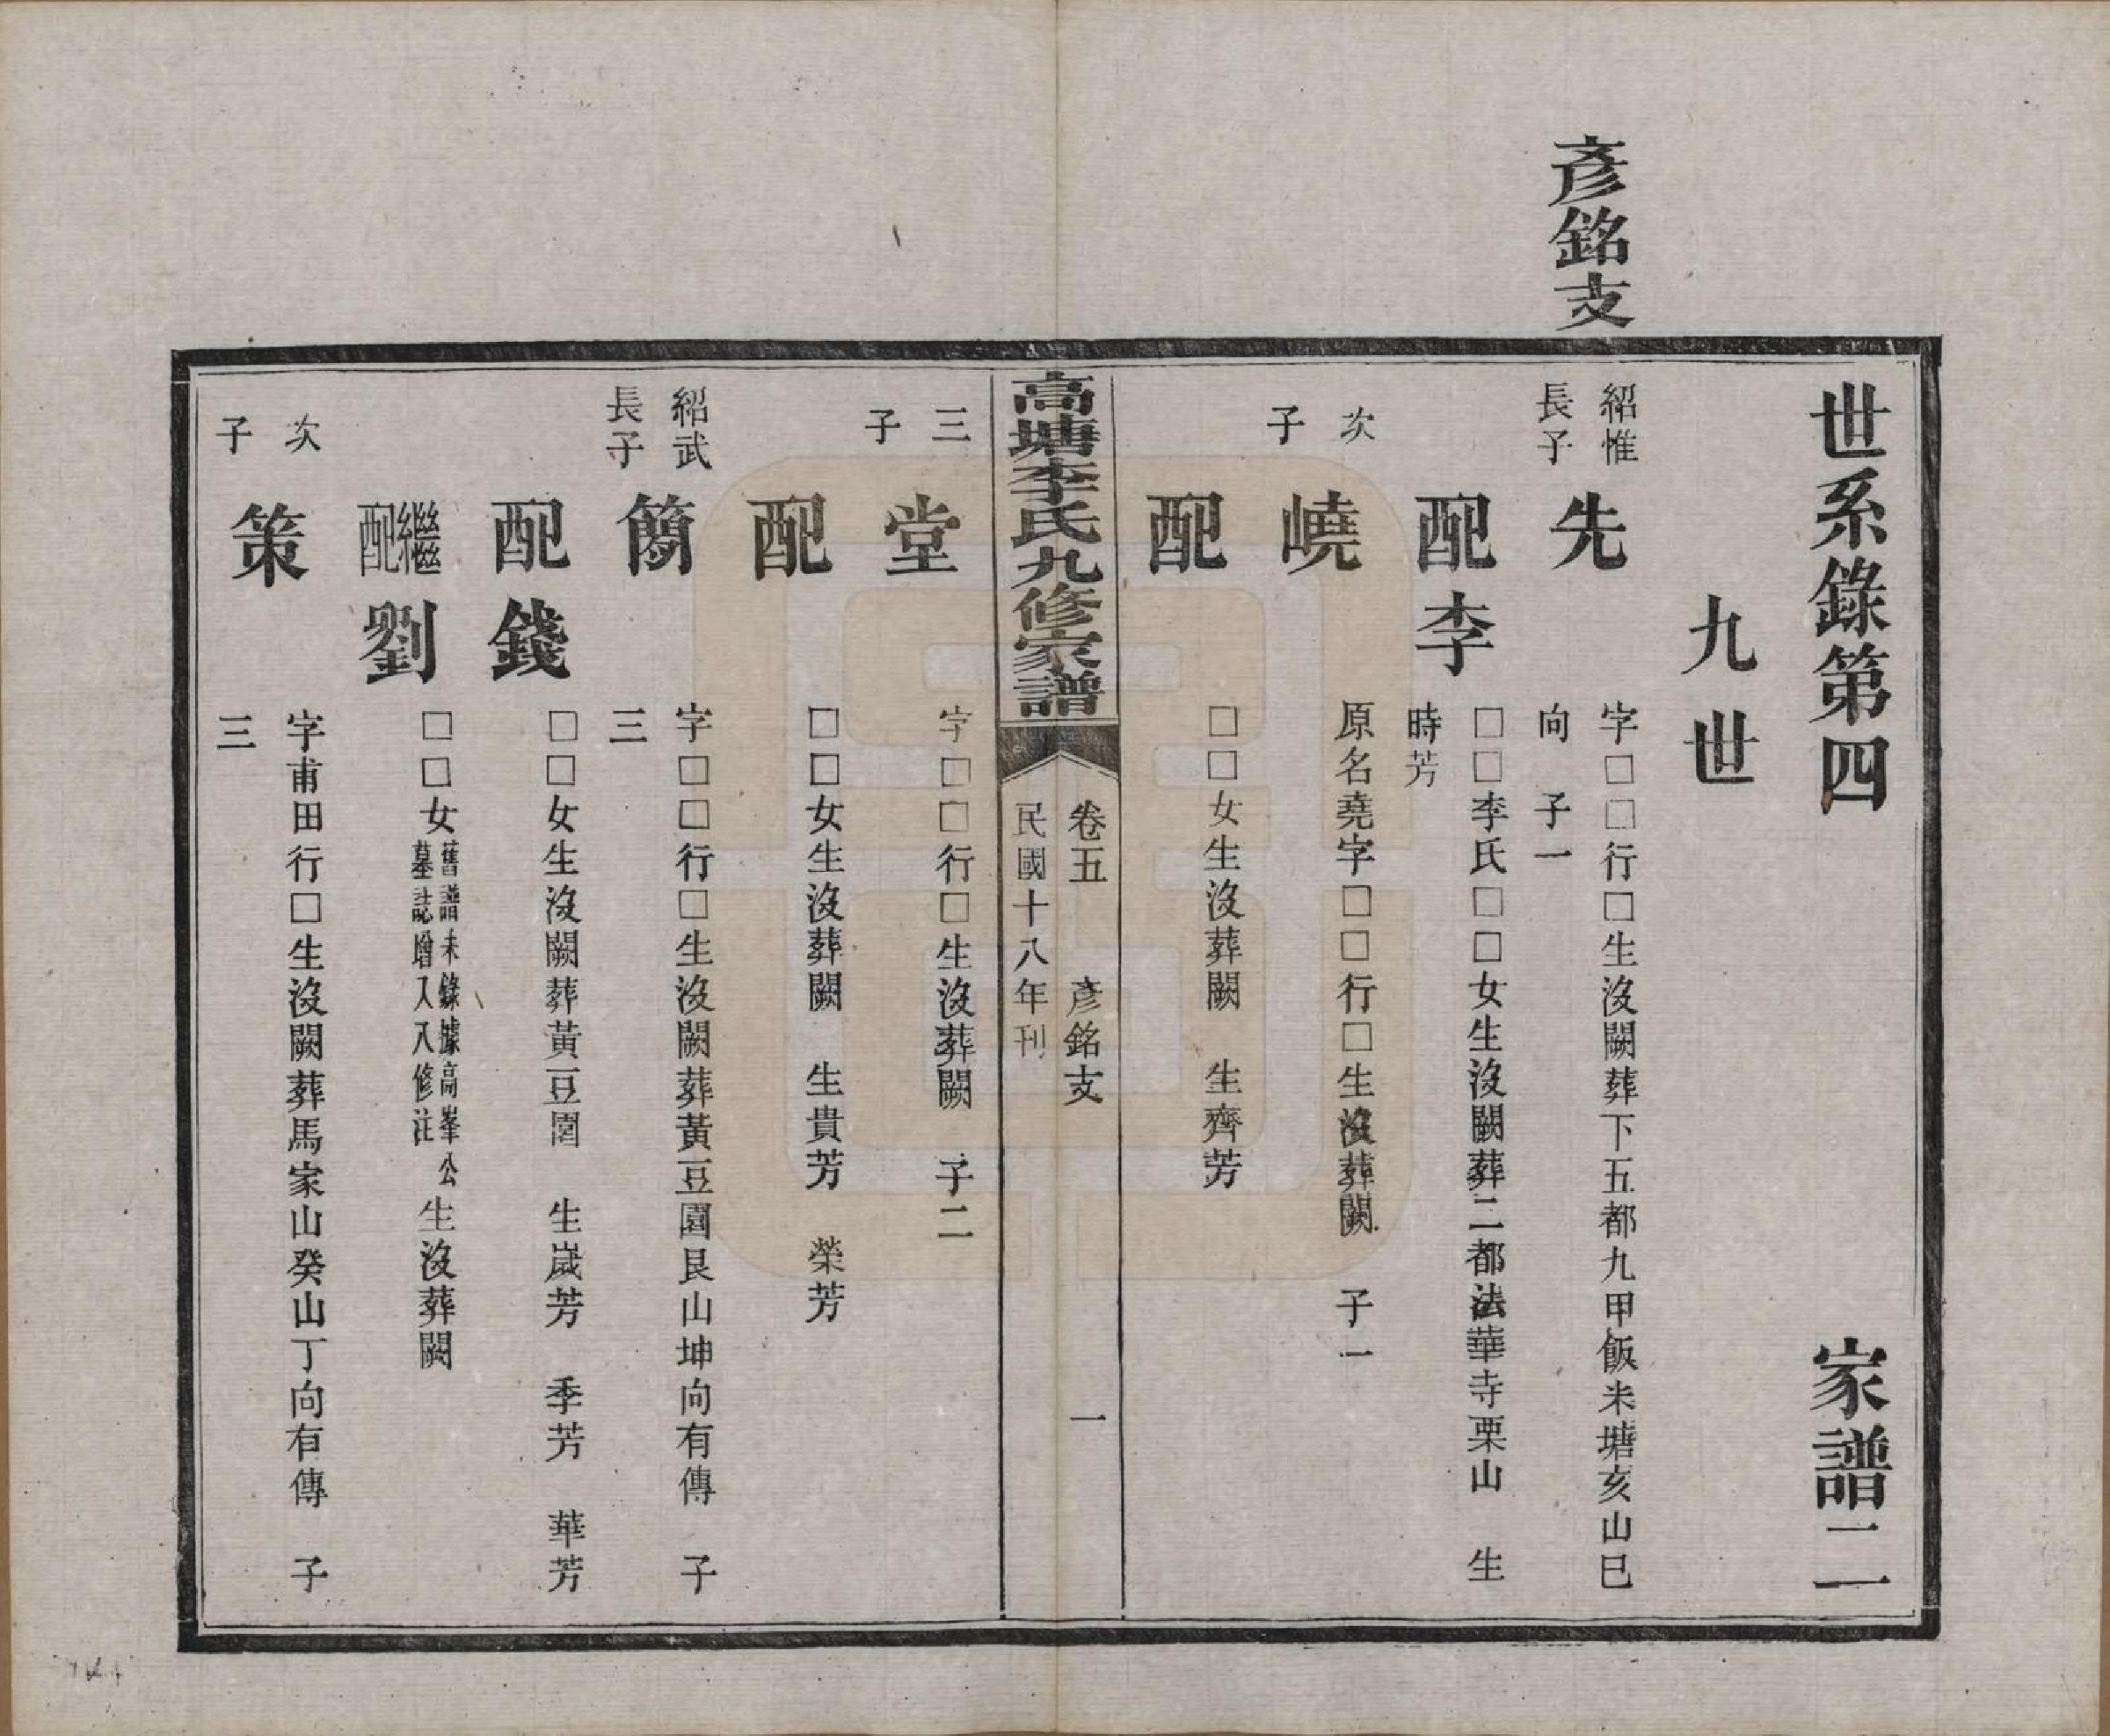 彥銘支
世系錄第四 家譜二
九世
紹惟
長子
先
字□□行□生沒闕葬下五都九甲飯米塘亥山巳
向 子一
配李
□□李氏□□女生沒闕葬二都法華寺栗山 生
時芳
次
子
嶢
原名堯字□□行□生沒葬闕 子一
配
□□女生沒葬闕 生齊芳
高塘李氏九修家譜
卷五 彥銘支 一
民國十八年刊
三
子
堂
字□□行□生沒葬闕 子二
配
□□女生沒葬闕 生貴芳 榮芳
紹武
長子
簡
字□□行□生沒闕葬黃豆園艮山坤向有傳 子
三
配錢
□□女生沒闕葬黃豆園 生嵗芳 季芳 華芳
繼
配
劉
□□女
舊譜未錄據高峯公
墓誌增入八修注
生沒葬闕
次
子
策
字甫田行□生沒闕葬馬家山癸山丁向有傳 子
三